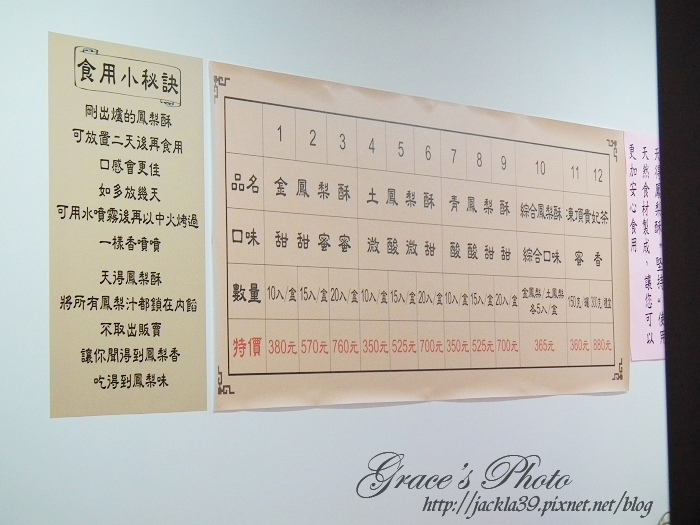 食用小秘訣
剛出爐的鳳梨酥
可放置二天後再食用
口感會更佳
如多放幾天
可用水噴霧後再以中火烤過
一樣香噴噴
天得鳳梨酥
將所有鳳梨汁都鎖在內餡
不取出販賣
讓你聞得到鳳梨香
吃得到鳳梨味
1 2 3 4 5 6 7 8 9 10 11 12
品名 金 鳳 梨 酥 土 鳳 梨 酥 青 鳳 梨 酥 綜合鳳梨酥 凍頂貴妃茶
口味 甜 甜 蜜 蜜 微 酸 微 甜 酸 酸 甜 甜 綜合口味 蜜 香
數量 10入/盒 15入/盒 20入/盒 10入/盒 15入/盒 20入/盒 10入/盒 15入/盒 20入/盒 金鳳梨/土鳳梨 各5入/盒 150克/罐 300克/禮盒
特價 380元 570元 760元 350元 525元 700元 350元 525元 700元 365元 360元 880元
天得鳳梨酥，堅持使用
天然食材製成，讓您可以
更加安心食用
Grace's Photo
http://jackla39.pixnet.net/blog